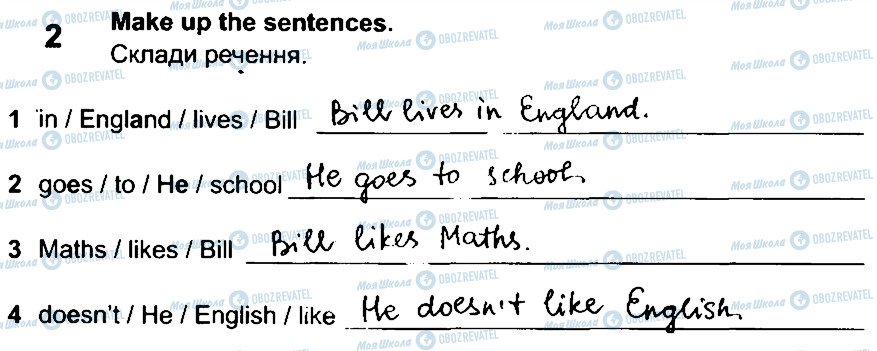 2 Make up the sentences.
Склади речення.
1 in / England / lives / Bill Bill lives in England.
2 goes / to / He / school He goes to school.
3 Maths / likes / Bill Bill likes Maths.
4 doesn't / He / English / like He doesn't like English.
Моя Школа OBOZREVATEL